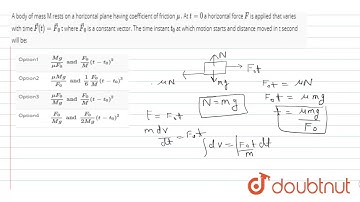 A body of mass M rests on a horizontal plane having coefficient of friction μ. At t = 0 a horizontal force F⃗ is applied that varies
with time F⃗(t) = F⃗₀ t where F⃗₀ is a constant vector. The time instant t₀ at which motion starts and distance moved in t second
will be:
Option1 Mg/μF₀ and F₀/M (t − t₀)³
Option2 μMg/F₀ and 1/6 F₀/M (t − t₀)³
Option3 μF₀/Mg and F₀/M (t − t₀)²
Option4 F₀/Mg and F₀/2Mg (t − t₀)²
N
F₀t
μN
mg
N = mg
F₀t = μN
F₀t = μmg
t = μmg/F₀
F = F₀t
m dv/dt = F₀t
∫dv = ∫F₀t/m dt
doubtnut